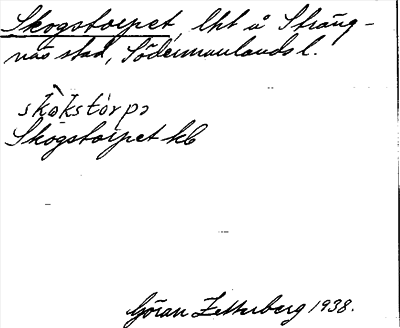 Skogstorpet, lht å Sträng-
näs stad, Södermanlands l.
skògkstórpə
Skogstorpet kb
Göran Zetterberg 1938.